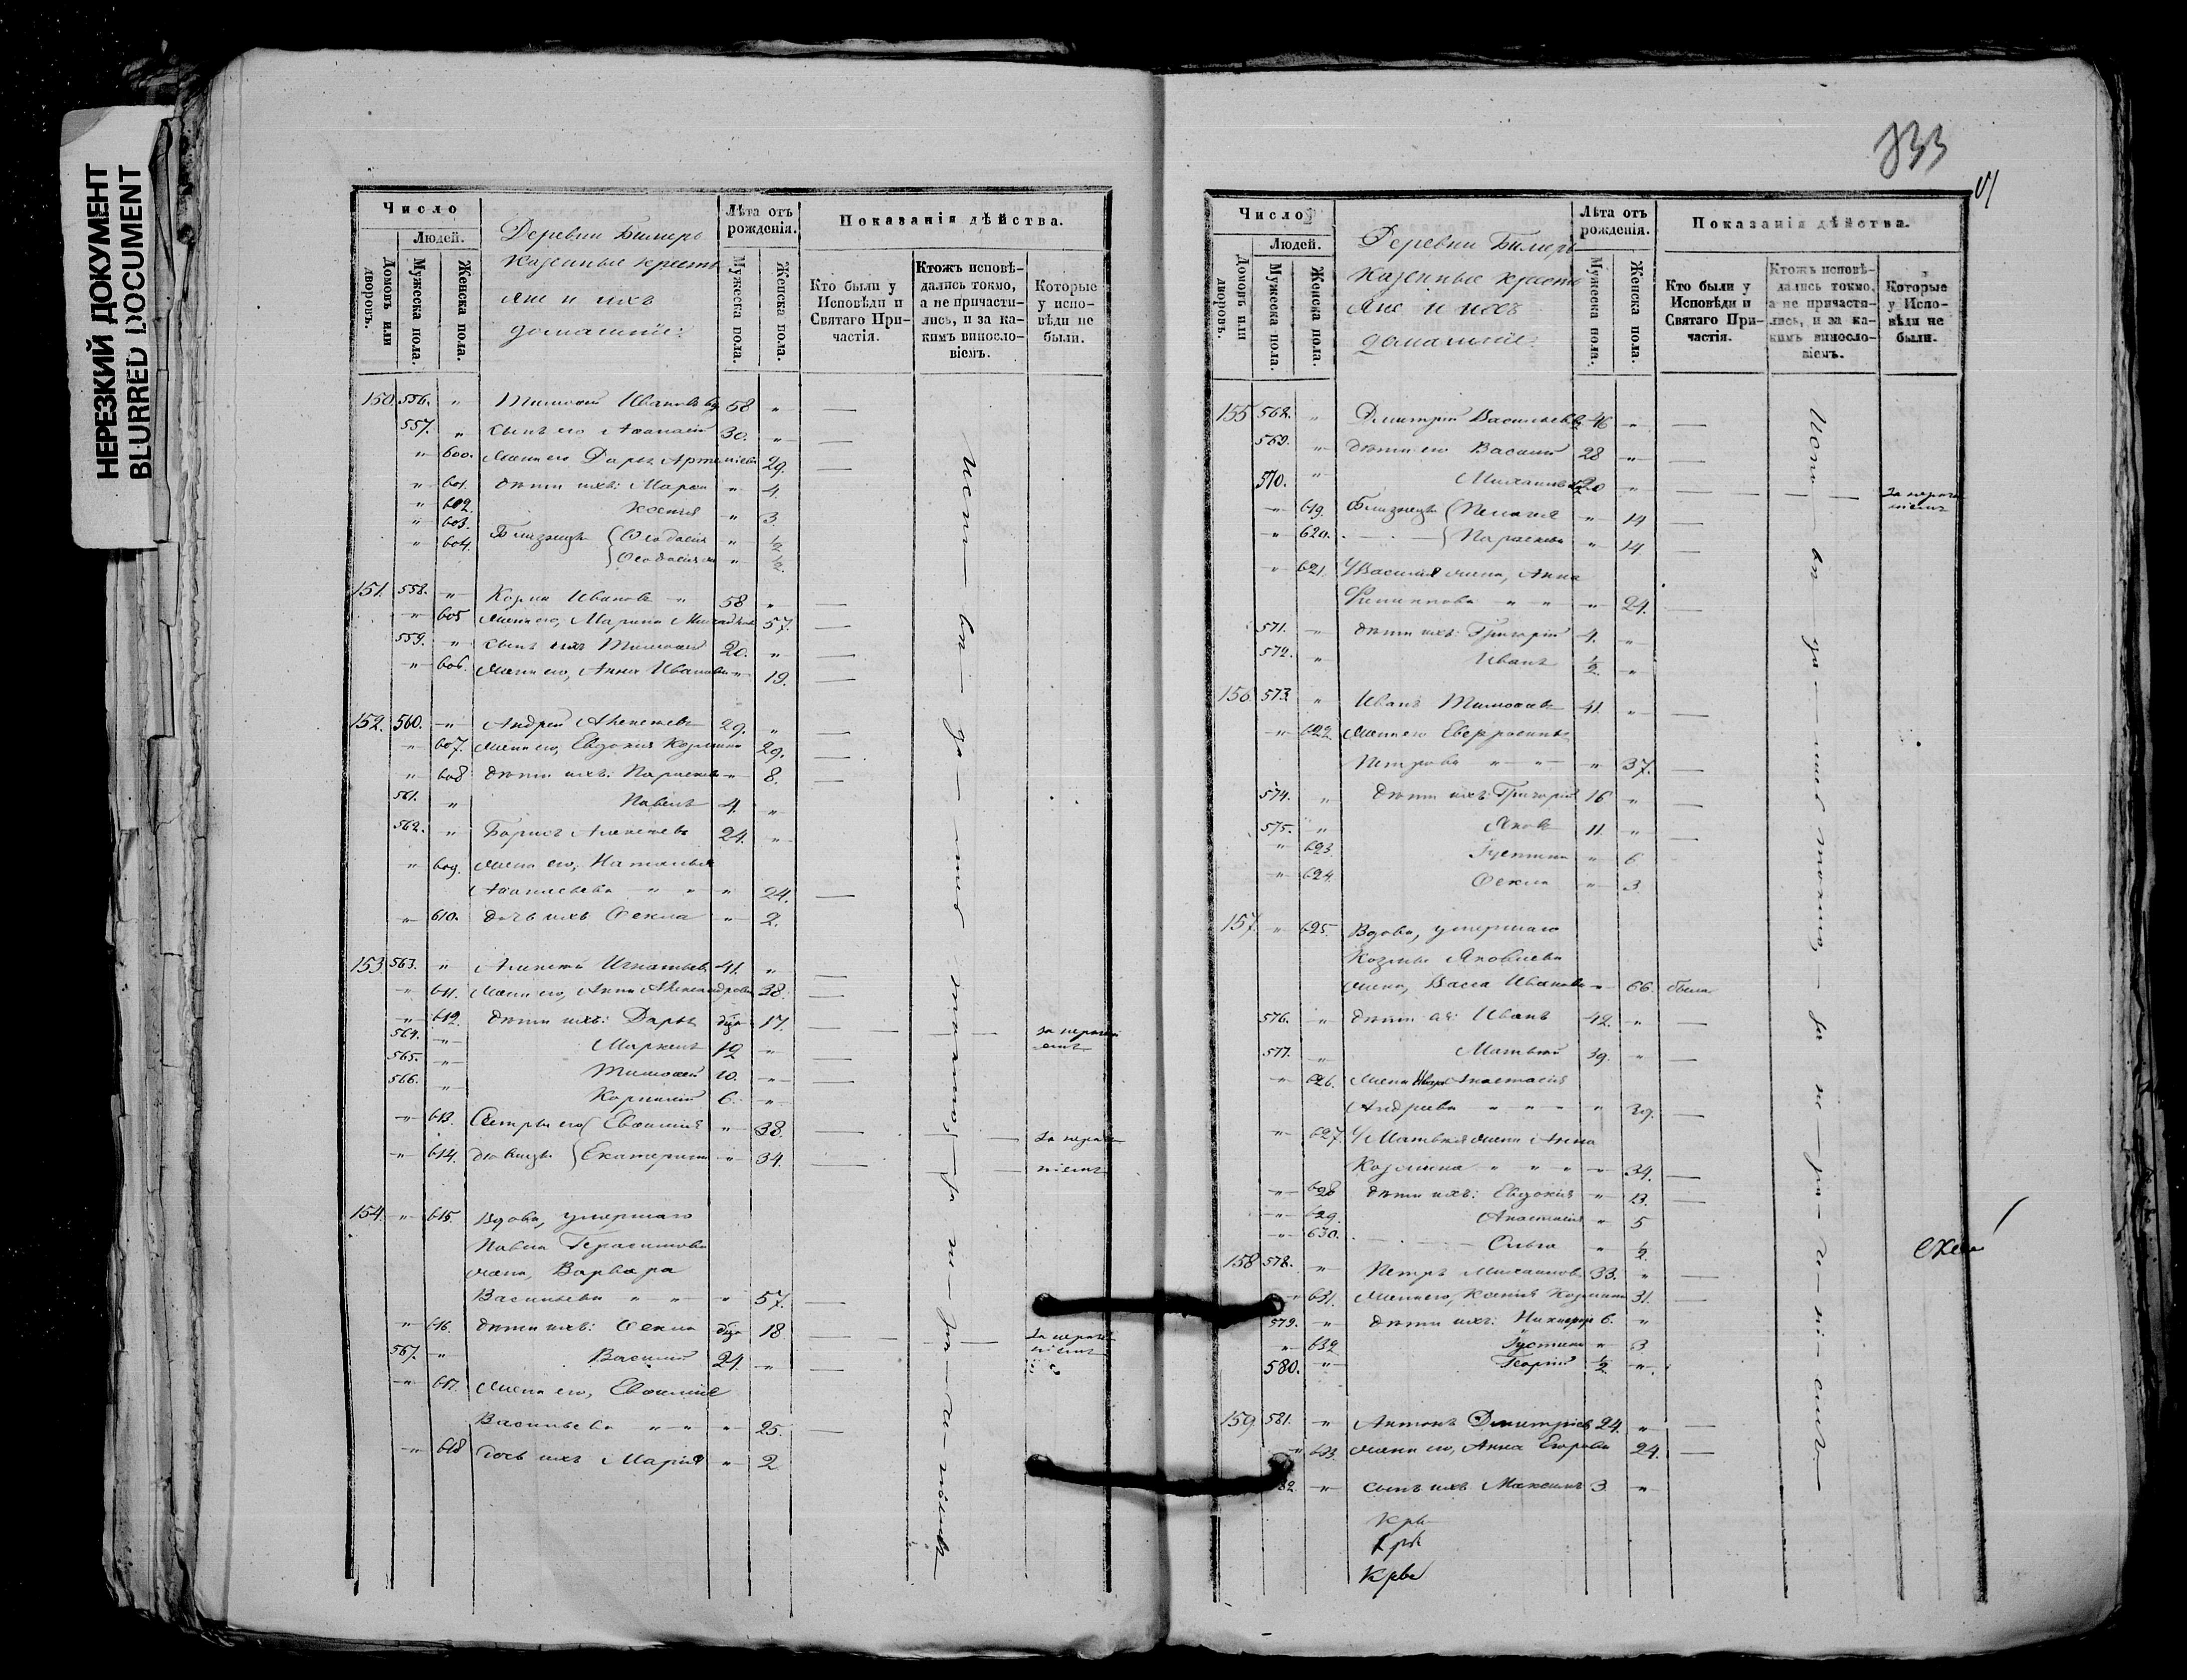 НЕРЕЗКИЙ ДОКУМЕНТ
BLURRED DOCUMENT
Число
Людей.
Домовъ или дворовъ.
Мужеска пола.
Женска пола.
Деревни Билярь
казенные кресть
яне и ихъ
домашніе:
Лѣта отъ рожденія.
Мужеска пола.
Женска пола.
Показанія дѣйства.
Кто были у Исповѣди и Святаго Причастія.
Ктожъ исповѣдались токмо, а не причастились, и за какимъ винословіемъ.
Которые у исповѣди не были.
150. 556. " Тимофей Ивановъ вд 58 "
557. " сынъ его Афанасій 30. "
" 600. жена его Дарья Артемьева 29.
" 601. дѣти ихъ: Марфа " 4
" 602. Ксенія " 3.
" 603. Близнецы Феодосія " 1/2
" 604. Феодосія " 1/2.
151. 558. " Козма Ивановъ " 58 "
" 605 жена его, Марина 57.
559. " сынъ ихъ Тимофей 20. "
" 606. жена его, Анна Иванова " 19.
152. 560. " Андрей Алексѣевъ 29. "
" 607. жена его, Евдокия Козмина 29.
" 608 дѣти ихъ: Параскева " 8.
561. " Павелъ 4. "
562. " Борисъ Алексѣевъ 24. "
" 609. жена его, Наталья
" " " 24.
" 610. дочь ихъ Фекла " 2.
153. 563. " Алексѣй Игнатьевъ 41. "
" 611. жена его, Анна Александрова 38.
" 612. дѣти ихъ: Дарья дѣв 17. за нерачѣ
ніемъ
564. " Маркелъ 12 "
565. " Тимофей 10. "
566. " Корнилій 6. "
" 613. Сестры его Евфимія " 38. за нерачѣ
" 614. дѣвицы Екатерина " 34. ніемъ
154. " 615. Вдова, умершаго
Павла Герасимова
жена, Варвара
Васильева " " " 57.
" 616. дѣти ихъ: Фекла дѣв 18 за нерачѣ
ніемъ
567. " Василій 24. "
" 617. жена его, Евфимія
Васильева " " " 25.
" 618 дочь ихъ Марія " 2
833
Число
Людей.
Домовъ или дворовъ.
Мужеска пола.
Женска пола.
Деревни Билярь
казенные кресть
яне и ихъ
домашніе.
Лѣта отъ рожденія.
Мужеска пола.
Женска пола.
Показанія дѣйства.
Кто были у Исповѣди и Святаго Причастія.
Ктожъ исповѣдались токмо, а не причастились, и за какимъ винословіемъ.
Которые у Исповѣди не были.
155 568. " Дмитрій Васильевъ 46 "
569. " дѣти его Василій 28 "
570. " Михаилъ 20 " за нерачѣ
ніемъ
" 619. Близнецы Пелагія " 14
" 620. Параскева " 14.
" 621. У Василія жена, Анна
Филиппова " " " 24.
571. " дѣти ихъ: Григорій 4. "
572. " Иванъ 1/2. "
156. 573. " Иванъ Тимофеевъ 41. "
" 622. жена его Евфросинья
Петрова " " " 37.
574. " дѣти ихъ: Григорій 16 "
575. " Яковъ 11. "
" 623. Іустина " 6
" 624. Фекла " 3.
157. " 625. Вдова, умершаго
Козмы Яковлева
жена, Васса Иванова " 66. была
576. " дѣти ея: Иванъ 42. "
577. " Матвѣй 39. "
" 626. жена Ивана Анастасія
Андреева " " " " 39.
" 627. У Матвѣя жена Анна
Козмина " " " " 34.
" 628 дѣти ихъ: Евдокія " 13.
" 629. Анастасія " 5
" 630. Ольга " 1/2.
158 578. " Петръ Михаиловъ 33. "
" 631. жена его, Ксенія Козмина 31.
579. " дѣти ихъ: Никифоръ 6. "
" 632. Іустина " 3
580. " Георгій 1/2. "
159. 581. " Антонъ Дмитріевъ 24. "
" 633. жена его, Анна Егорова 24.
82. " сынъ ихъ Максимъ 3. "